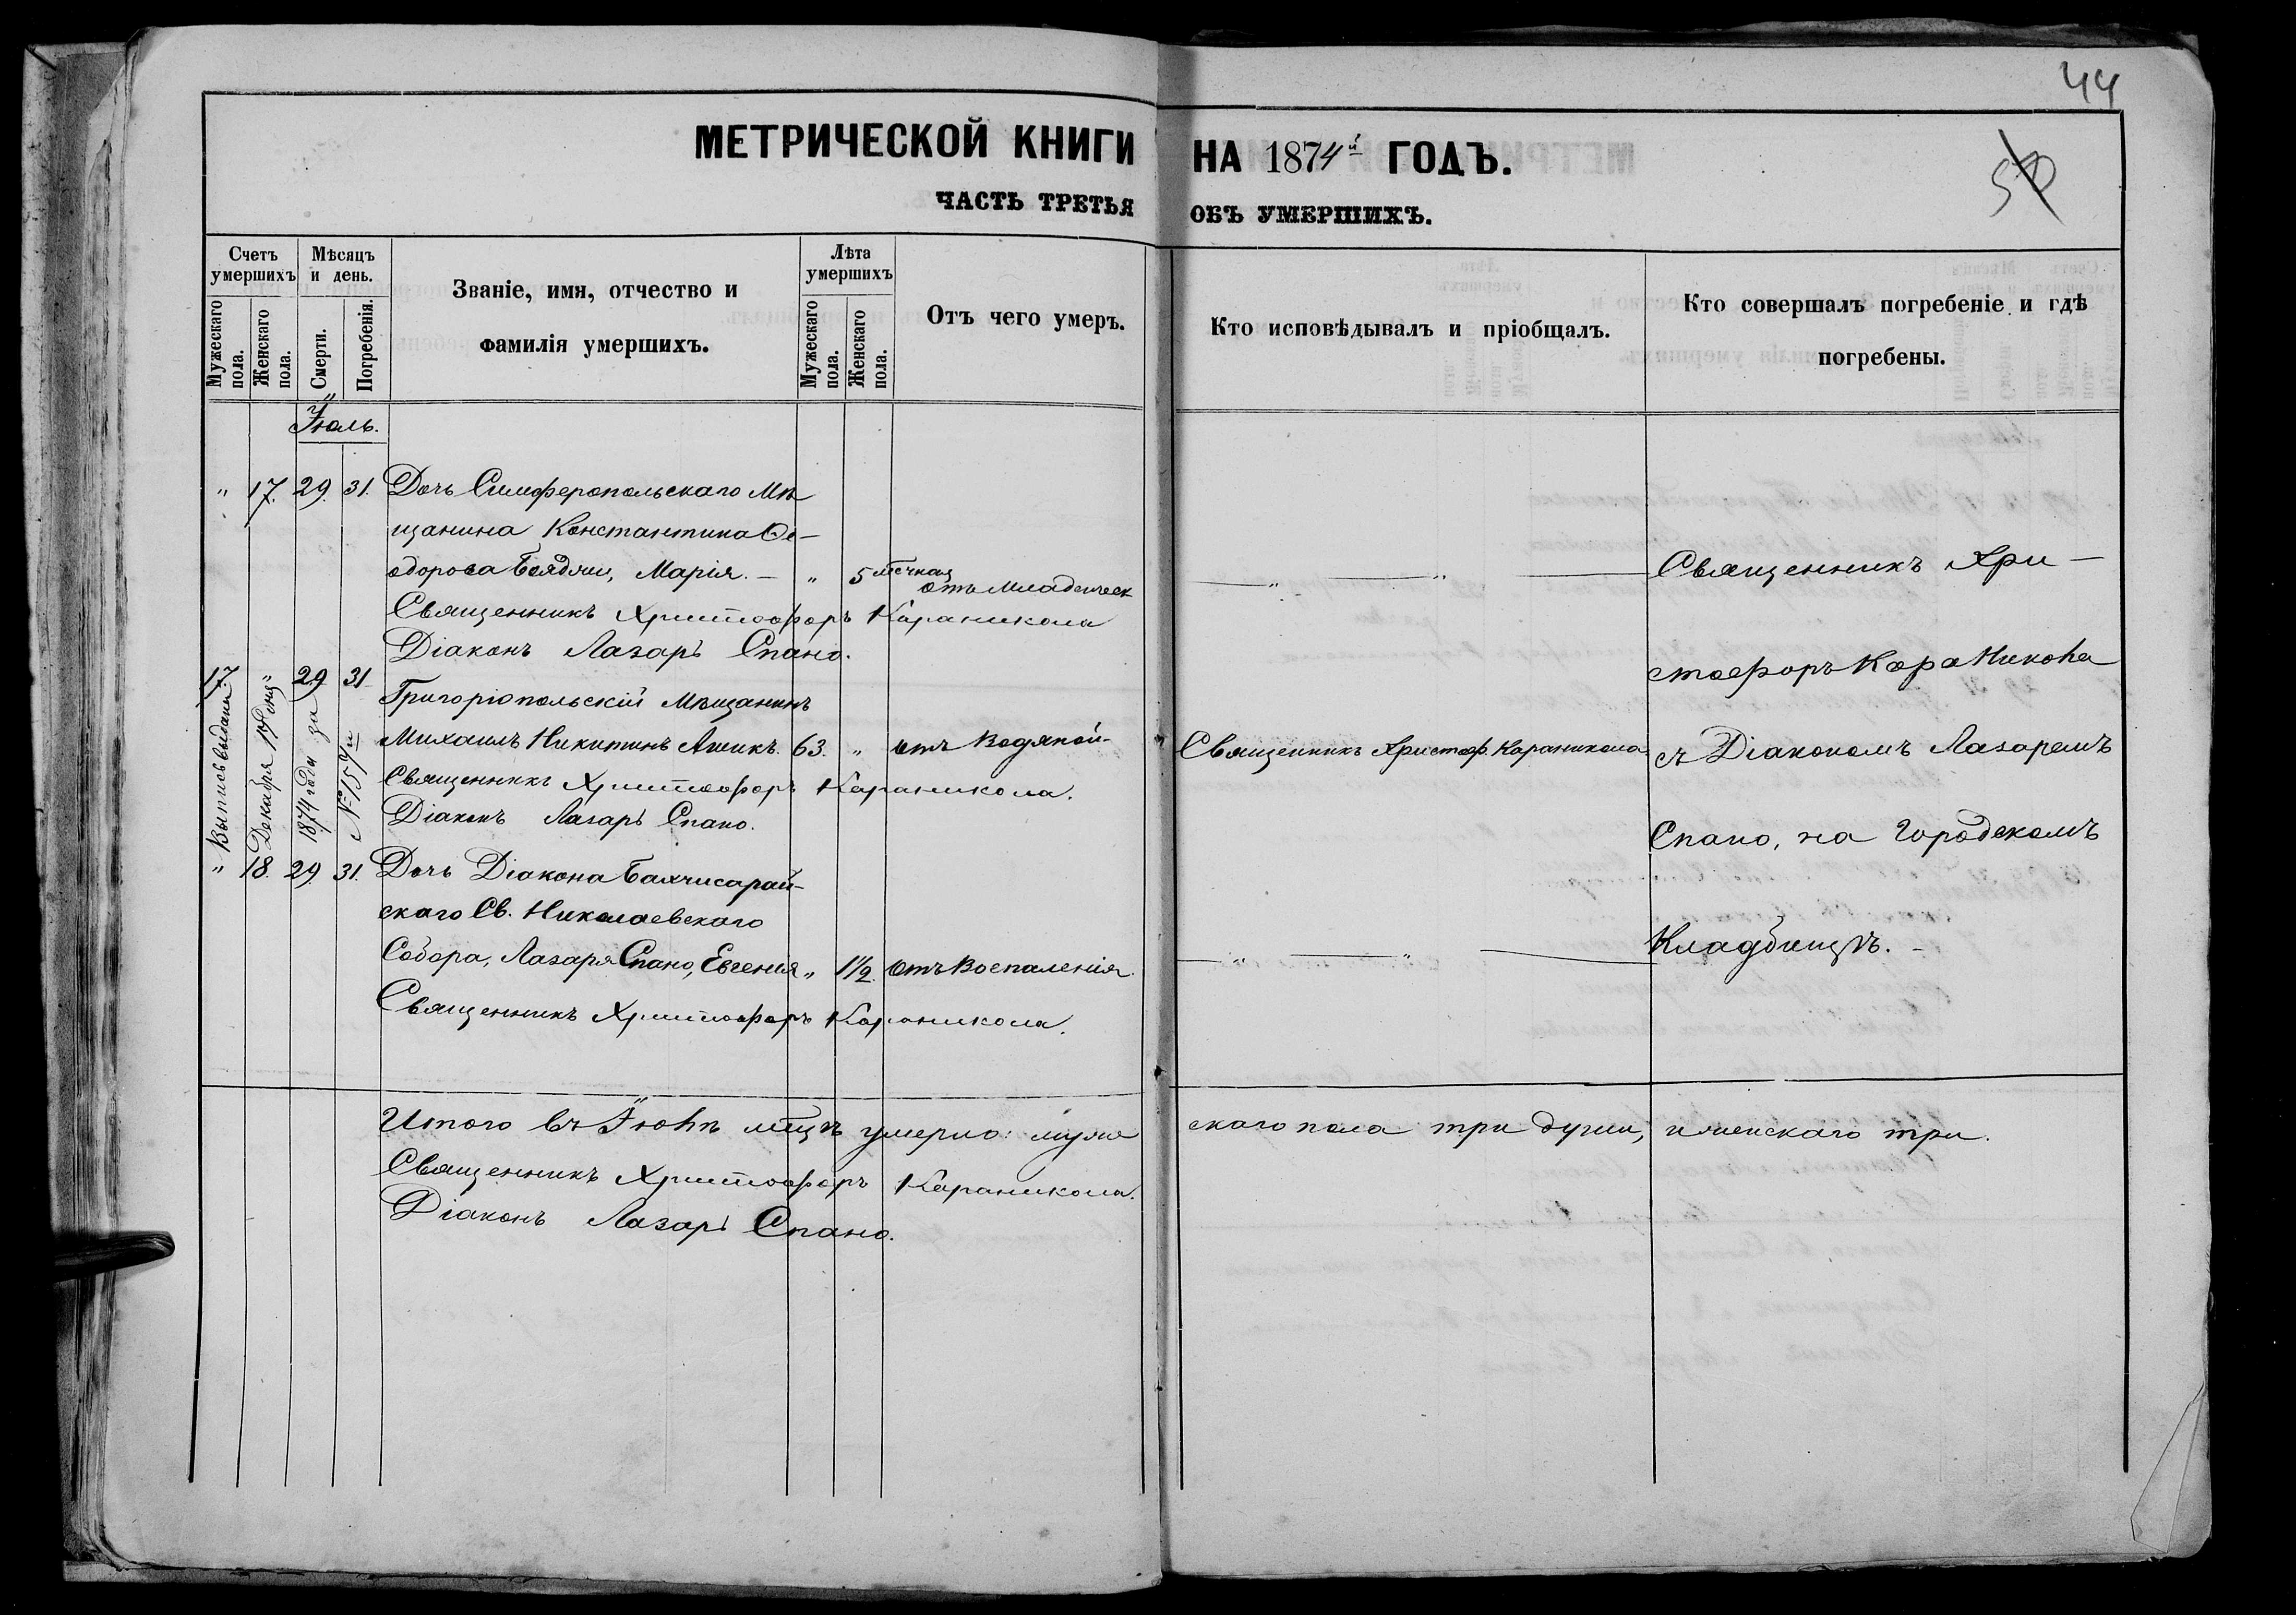 44
50
МЕТРИЧЕСКОЙ КНИГИ НА 1874й ГОДЪ.
ЧАСТЬ ТРЕТЬЯ ОБЪ УМЕРШИХЪ.
Счетъ умершихъ
Мужескаго пола.
Женскаго пола.
Мѣсяцъ и день.
Смерти.
Погребенія.
Званіе, имя, отчество и
фамилія умершихъ.
Лѣта умершихъ
Мужескаго пола.
Женскаго пола.
Отъ чего умеръ.
Кто исповѣдывалъ и пріобщалъ.
Кто совершалъ погребеніе и гдѣ
погребены.
Іюль.
" 17. 29. 31. Дочь Симферопольскаго Мѣ
щанина Константина Ѳе-
одорова Бояджи, Марія. — " 5 мѣсчная
отъ младенческ
Священникъ Христофоръ Караникола
Діаконъ Лазарь Спано.
17. " 29 31
Григоріопольскій Мѣщанинъ
Михаилъ Никитинъ Ашикъ. 63. " отъ Водяной- Священникъ Христоф. Караникола
Священникъ Христофоръ Караникола.
Діаконъ Лазарь Спано.
Выпись выдана
Декабря 17 дня
1874 года за
№ 157м
" 18. 29. 31. Дочь Діакона Бахчисарай-
скаго Св. Николаевскаго
Собора, Лазаря Спано, Евгенія " 1½. отъ Воспаленія
Священникъ Христофоръ Караникола.
Священникъ Хри-
стофоръ Караникола
съ Діакономъ Лазаремъ
Спано, на Городскомъ
Кладбищѣ. -
Итого въ Іюлѣ мѣцѣ умерло: муже скаго пола три души, женскаго три.
Священникъ Христофоръ Караникола.
Діаконъ Лазарь Спано.